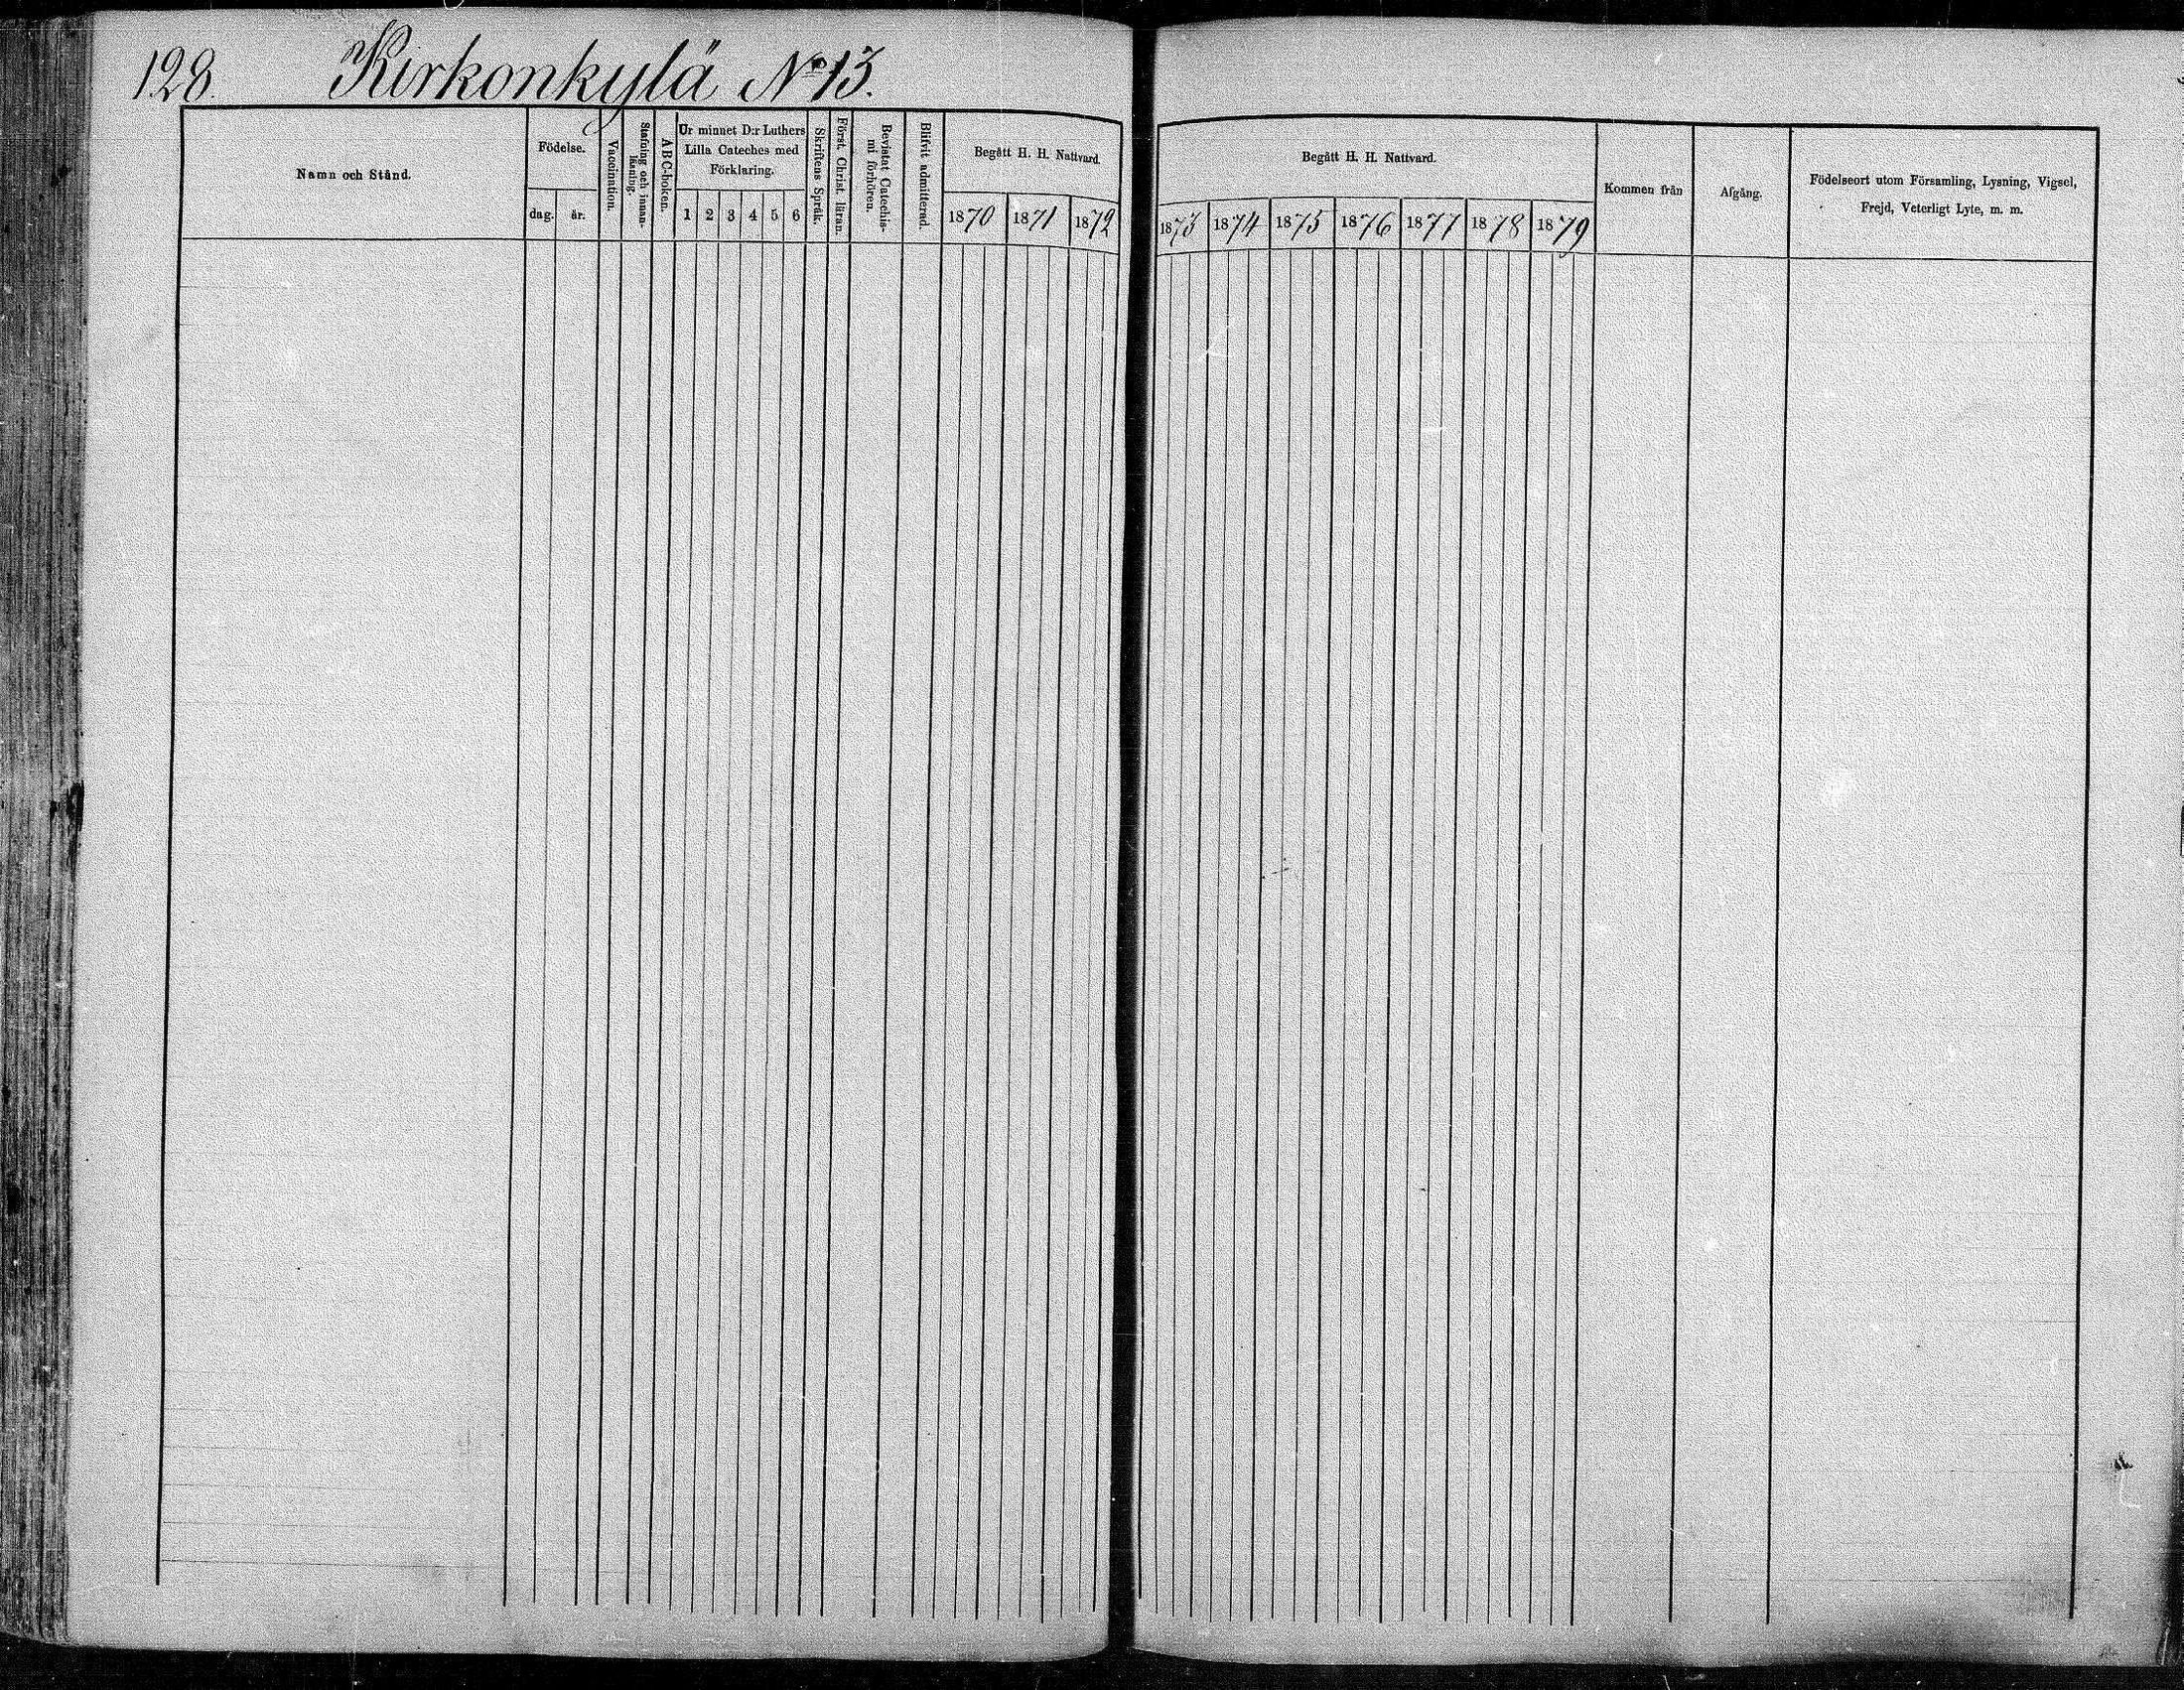 128. Kirkonkylä No 13.
Namn och Stånd.
Födelse.
dag.
år.
Vaccination.
Stafning och innan-
läsning.
ABC-boken.
Ur minnet D:r Luthers
Lilla Cateches med
Förklaring.
1 2 3 4 5 6
Skriftens Språk.
Först. Christ. läran.
Bevistat Catechis-
mi förhören.
Blifvit admitterad.
Begått H. H. Nattvard.
1870 1871 1872
Begått H. H. Nattvard.
1873 1874 1875 1876 1877 1878 1879
Kommen från
Afgång.
Födelseort utom Församling, Lysning, Vigsel,
Frejd, Veterligt Lyte, m. m.